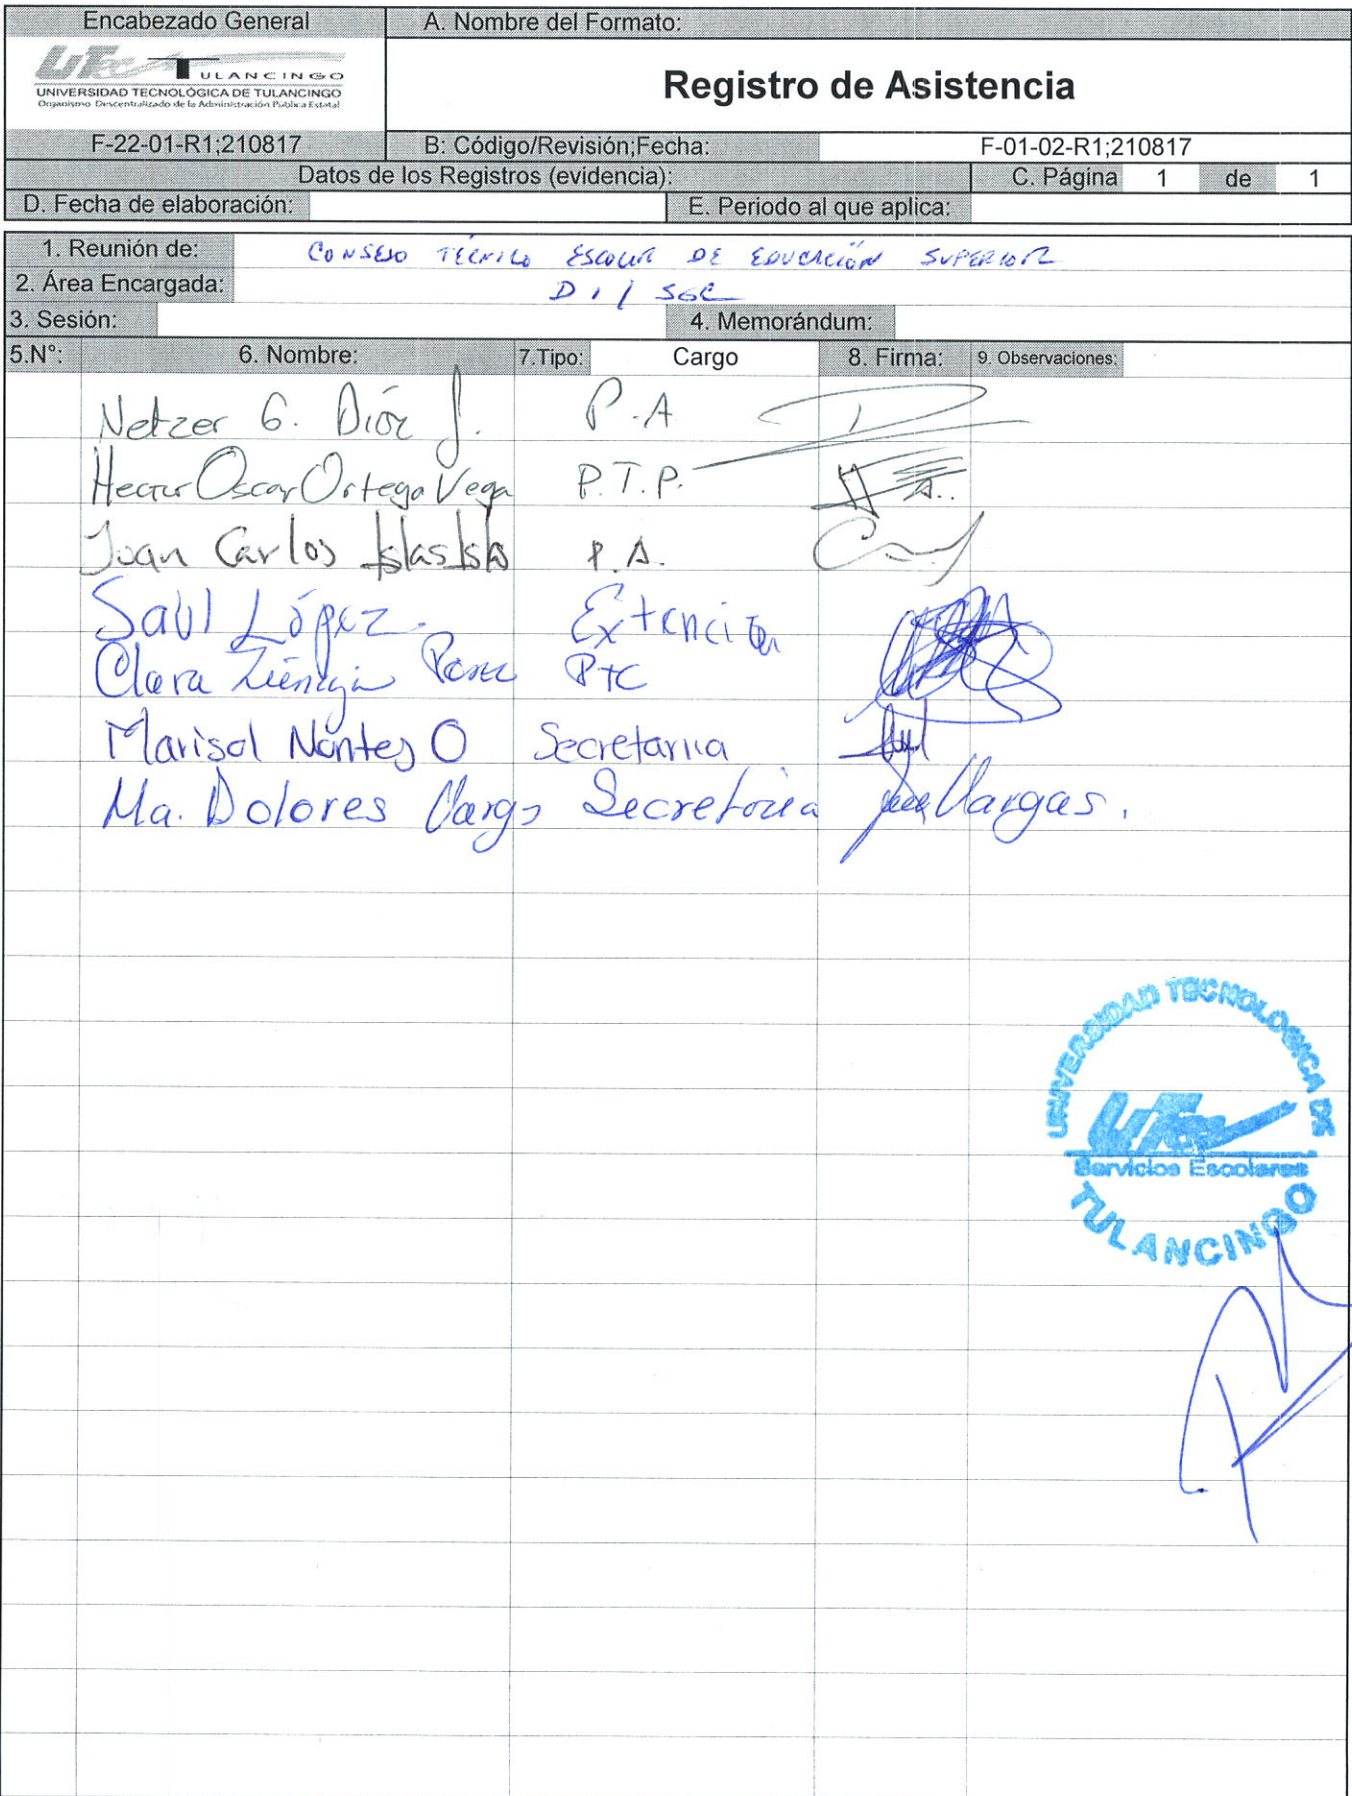 Encabezado General A. Nombre del Formato:
UTec TULANCINGO
UNIVERSIDAD TECNOLÓGICA DE TULANCINGO
Organismo Descentralizado de la Administración Pública Estatal
Registro de Asistencia
F-22-01-R1;210817 B: Código/Revisión;Fecha: F-01-02-R1;210817
Datos de los Registros (evidencia): C. Página 1 de 1
D. Fecha de elaboración: E. Periodo al que aplica:
1. Reunión de: CONSEJO TÉCNICO ESCOLAR DE EDUCACIÓN SUPERIOR
2. Área Encargada: DI / SGC
3. Sesión: 4. Memorándum:
5.N°: 6. Nombre: 7.Tipo: Cargo 8. Firma: 9. Observaciones:
Netzer G. J. P.A
Hector Oscar Ortega Vega P.T.P.
Juan Carlos Islas Islas P.A.
Saúl López Extención
Clara PTC
Marisol O Secretaria
Ma. Dolores Secretaria Vargas.
UNIVERSIDAD TECNOLOGICA DE
UTec
Servicios Escolares
TULANCINGO